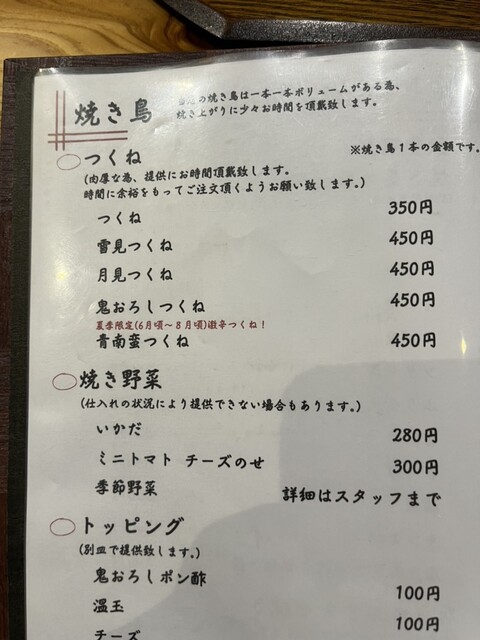 焼き鳥
の焼き鳥は一本一本ボリュームがある為、
焼き上がりに少々お時間を頂戴致します。
※焼き鳥1本の金額です。
つくね
(肉厚な為、提供にお時間頂戴致します。
時間に余裕をもってご注文頂くようお願い致します。)
つくね 350円
雪見つくね 450円
月見つくね 450円
鬼おろしつくね 450円
夏季限定(6月頃～8月頃)激辛つくね!
青南蛮つくね 450円
焼き野菜
(仕入れの状況により提供できない場合もあります。)
いかだ 280円
ミニトマト チーズのせ 300円
季節野菜 詳細はスタッフまで
トッピング
(別皿で提供致します。)
鬼おろしポン酢 100円
温玉 100円
チーズ